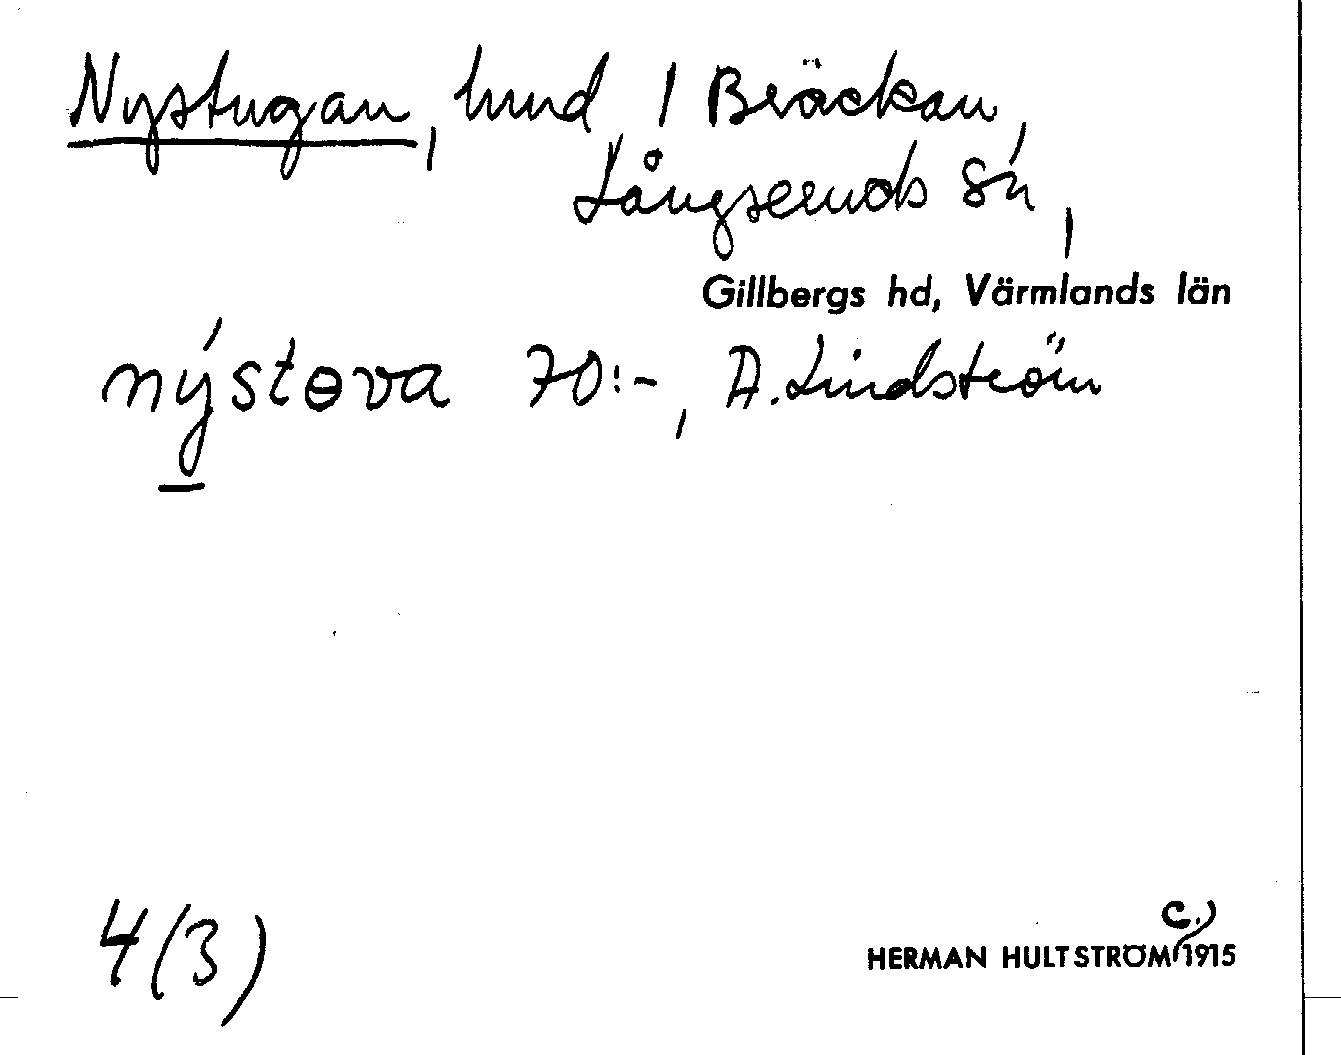 Nystugan, hmd, 1 Bräckan,
Långseruds sn,
Gillbergs hd, Värmlands län
nýstɵva 70:-, A. Lindström
4(3)
c.)
HERMAN HULTSTRÖM 1915